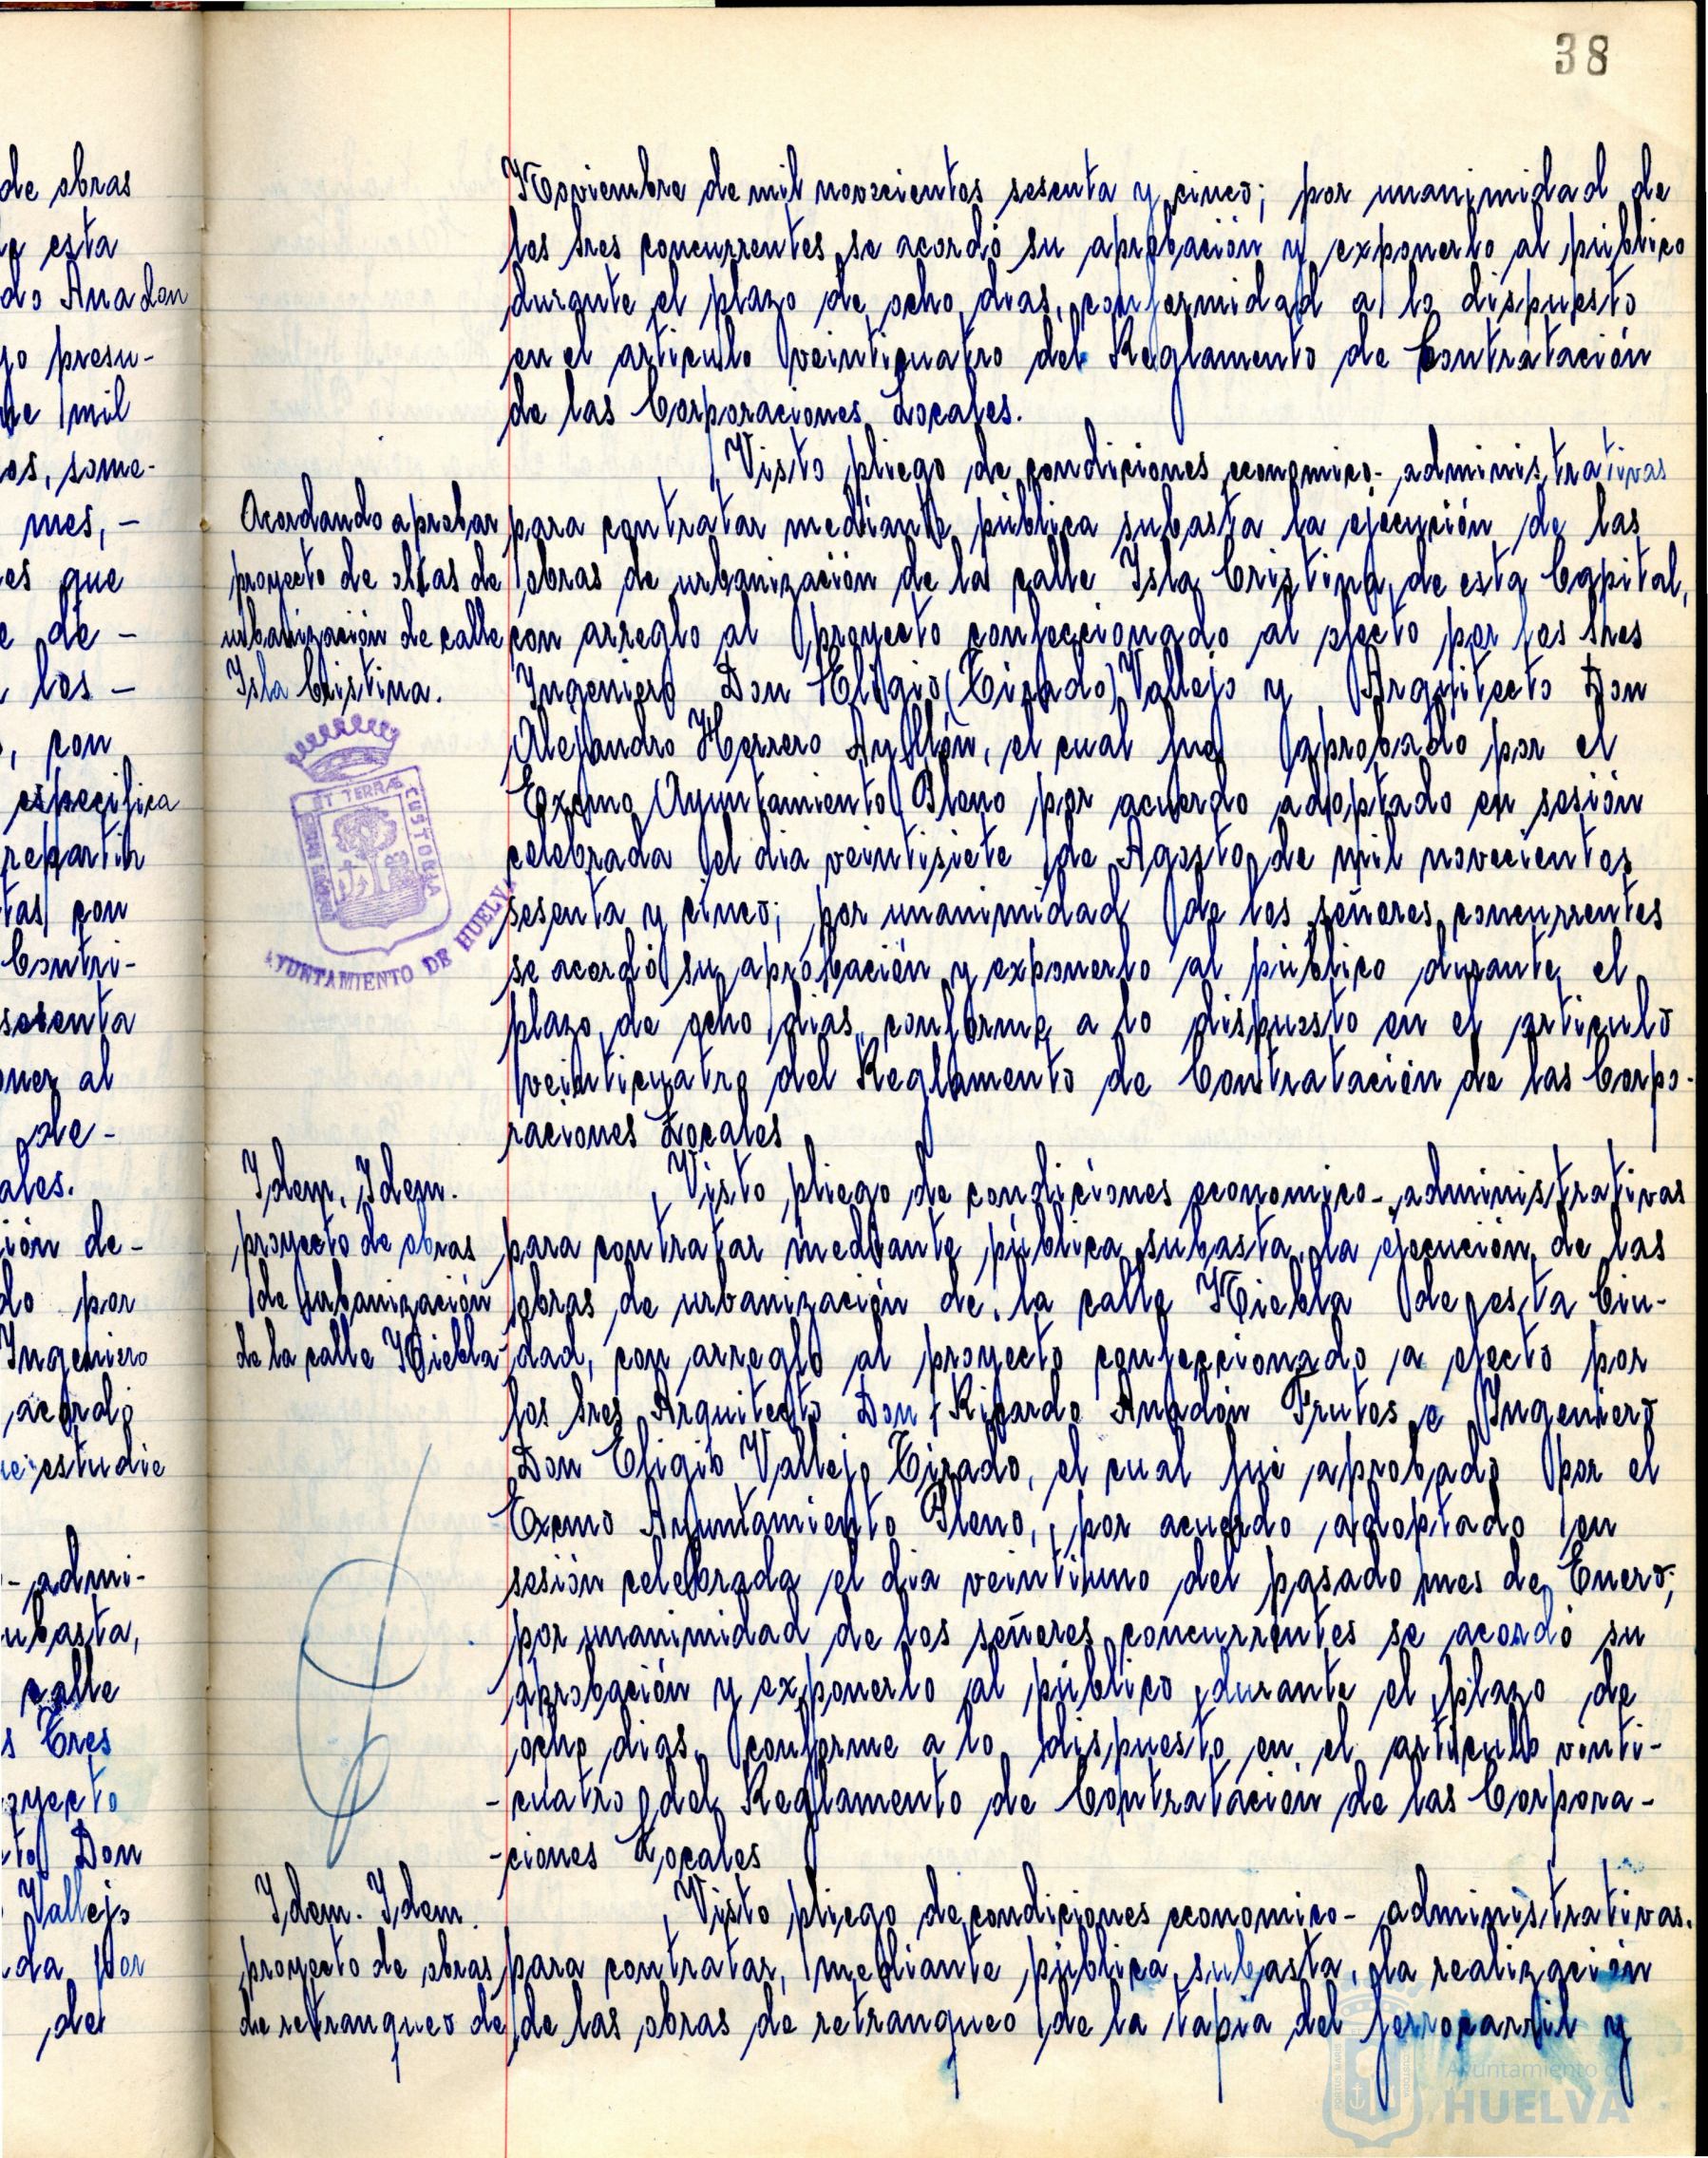 38
de obras
esta
do Anadon
presu-
mil
os, some-
mes, -
es que
de -
los -
, con
especifica
repartir
tas con
Contri-
sesenta
oner al
de -
ales.
ión de -
do por
Ingeniero
acordó
estudie
- admi-
ubasta,
calle
s Tres
oyecto
Don
Vallejo
da por
del
Noviembre de mil novecientos sesenta y cinco; por unanimidad de
los sres concurrentes se acordó su aprobación y exponerlo al público
durante el plazo de ocho dias, conformidad a lo dispuesto
en el articulo veinticuatro del Reglamento de Contratación
de las Corporaciones Locales.
Visto pliego de condiciones economico- administrativas
Acordando aprobar
proyecto de obras de
urbanización de calle
Isla Cristina.
para contratar mediante pública subasta la ejecución de las
obras de urbanización de la calle Isla Cristina, de esta Capital,
con arreglo al proyecto confeccionado al efecto por los sres
Ingeniero Don Eligio (Tirado) Vallejo y Arquitecto Don
Alejandro Herrero Ayllón, el cual fue aprobado por el
Excmo Ayuntamiento Pleno por acuerdo adoptado en sesión
celebrada el dia veintisiete de Agosto de mil novecientos
sesenta y cinco; por unanimidad de los señores concurrentes
se acordó su aprobación y exponerlo al público durante el
plazo de ocho dias conforme a lo dispuesto en el articulo
veinticuatro del Reglamento de Contratación de las Corpo-
raciones Locales
ET TERRAE CUSTODIA
AYUNTAMIENTO DE HUELVA
Idem. Idem.
proyecto de obras
de urbanización
de la calle Niebla
Visto pliego de condiciones economico- administrativas
para contratar mediante pública subasta la ejecución de las
obras de urbanización de la calle Niebla de esta Ciu-
dad, con arreglo al proyecto confeccionado a efecto por
los sres Arquitecto Don Ricardo Anadón Frutos e Ingeniero
Don Eligio Vallejo Tirado, el cual fué aprobado por el
Excmo Ayuntamiento Pleno, por acuerdo adoptado en
sesión celebrada el dia veintiuno del pasado mes de Enero;
por unanimidad de los señores concurrentes se acordó su
aprobación y exponerlo al público durante el plazo de
ocho dias conforme a lo dispuesto en el articulo vinti-
-cuatro del Reglamento de Contratación de las Corpora-
-ciones Locales
Idem. Idem.
proyecto de obras
de retranqueo de
Visto pliego de condiciones economico- administrativas.
para contratar, mediante pública subasta, la realización
de las obras de retranqueo de la tapia del ferrocarril y
Ayuntamiento de
HUELVA